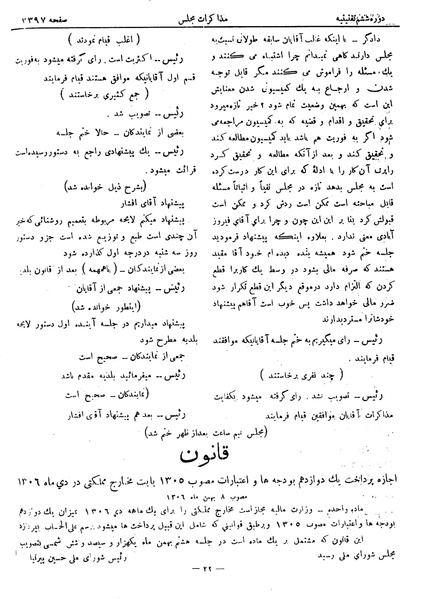 صفحه ۳۳۹۷
مذاکرات مجلس
دوره ششم تقنینیه
دادگر ـ با اینکه غالب آقایان سابقه طولانی نسبت به
مجلس دارند گاهی نمیدانم چرا اشتباه می کنند و
یك مسئله را فراموش می کنند و میگر قابل توجه
شدن و ارجاع به یك کمیسیون شدن معنایش
این است که بهمین وضعیت تمام شود؟ خیر تازه میرود
برای تحقیق و اقدام و قضیه که به کمیسیون مراجعه می
شود اگر به فوریت هم باشد باید کمیسیون مطالعه کند
و تحقیق کند و بعد از آنکه مطالعه و تحقیق کرد
راپرت آن کار را با ادله که برای این کار درست کرده
است به مجلس بدهد تازه در مجلس نفیاً و اثباتاً مسئله
قابل مباحثه است ممکن است ردش کرد و ممکن است
قبولش کرد بنا بر این این چون و چرا برای آقای فیروز
آبادی معنی ندارد. بعلاوه اینکه پیشنهاد فرمودید
جلسه ختم شود همیشه بنده دیده ام خود آقا مقید
هستند که صرفه مالی بشود در وسط یك کاررا قطع
کردن که الزام دارد در موقع دیگر این قطع تکرار شود
ضرر مالی خواهد داشت پس خوب است آقا هم پیشنهاد
خودشانرا مسترد بدارند
رئیس ـ رای میگیریم به ختم جلسه آقایانیکه موافقند
قیام فرمایند.
(چند نفری برخاستند)
رئیس ـ تصویب نشد. رای گرفته میشود بکفایت
مذاکرات آقایان موافقین قیام فرمایند
(اغلب قیام نمودند)
رئیس ـ اکثریت است. رای گرفته میشود به فوریت
قسم اول آقایانیکه موافق هستند قیام فرمایند
(جمع کثیری برخاستند)
رئیس ـ تصویب شد.
بعضی از نمایندگان ـ حالا ختم جلسه
رئیس ـ یك پیشنهادی راجع به دستور رسیده است
قرائت میشود.
(بشرح ذیل خوانده شد)
پیشنهاد آقای افشار
پیشنهاد میکنم لایحه مربوطه بتعمیم روشنائی که خبر
آن چندی است طبع و توزیع شده است جزو دستور
روز سه شنبه در درجه اول گذارده شود
بعضی از نمایندگان ـ (با همهمه) بعد از قانون بلدیه
رئیس ـ پیشنهاد جمعی از آقایان
(اینطور خوانده شد)
پیشنهاد میداریم در جلسه آینده اول دستور لایحه
بلدیه مطرح شود
جمعی از نمایندگان ـ صحیح است
رئیس ـ میفرمائید بلدیه مقدم باشد
(نمایندگان ـ صحیح است)
رئیس ـ بعد هم پیشنهاد آقای افشار
(مجلس نیم ساعت بعد از ظهر ختم شد)
قانون
اجازه پرداخت یك دوازدهم بودجه ها و اعتبارات مصوب ۱۳۰۵ بابت مخارج مملکتی در دی ماه ۱۳۰۶
مصوب ۸ بهمن ماه ۱۳۰۶
ماده واحده ـ وزارت مالیه مجاز است مخارج مملکتی را برای یك ماهه دی ۱۳۰۶ بمیزان یك دوازدهم
بودجه ها و اعتبارات مصوب ۱۳۰۵ و برطبق قوانینی که شامل این قبیل پرداخت ها میشود برسم علی الحساب بپردازد
این قانون که مشتمل بر یك ماده است در جلسه هشتم بهمن ماه یکهزار و سیصد و شش شمسی بتصویب
مجلس شورای ملی رسید
رئیس شورای ملی حسین پیرنیا
ـ ۲۲ ـ